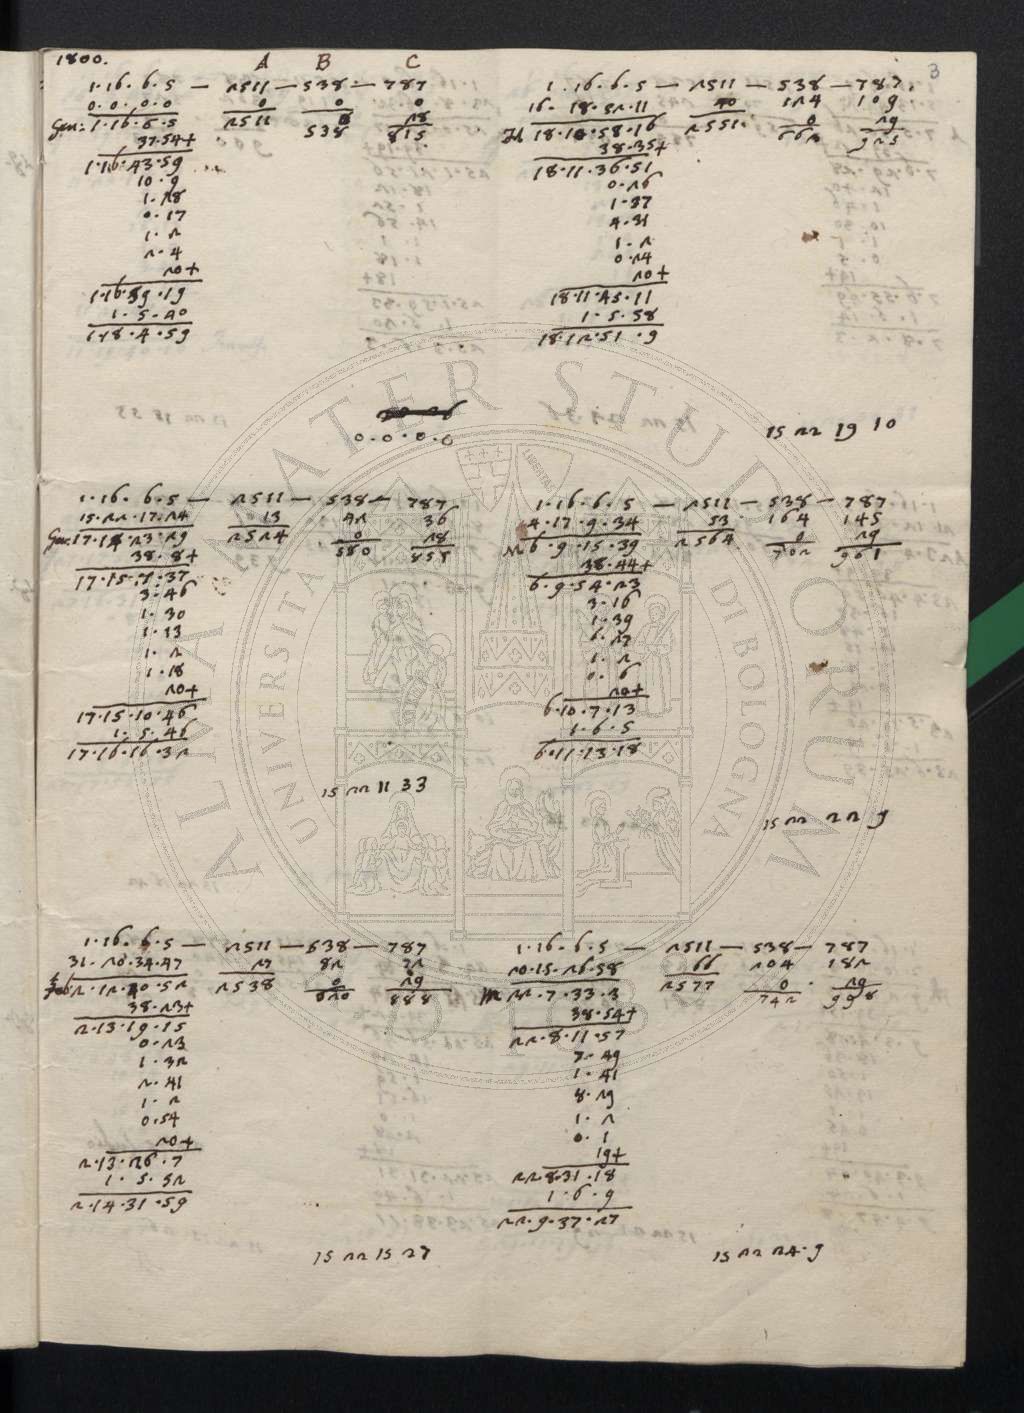 1800.
A B C
3
1.16.6.5 — 2511 — 538 — 787
0.0.0.0 0 0 0
Gen: 1.16.6.5 2511 538 28
815
37.54+
1.16.43.59
10.9
1.28
0.17
1.2
2.4
20+
1.16.59.19
1.5.40
1.18.4.59
1.16.6.5 — 2511 — 538 — 787
16.18.52.11 40 124 109
18.10.58.16 2551 0 29
662 925
38.35+
18.11.36.51
0.26
1.37
4.31
1.2
0.24
20+
18.11.45.11
1.5.58
18.12.51.9
0.0.0.0
15 22 19 10
1.16.6.5 — 2511 — 538 — 787
15.22.17.24 13 42 36
Gen: 17.14.23.29 2524 0 28
580 851
38.8+
17.15.1.37
3.46
1.30
1.13
1.2
1.18
20+
17.15.10.46
1.5.46
17.16.16.32
15 22 11 33
1.16.6.5 — 2511 — 538 — 787
4.17.9.34 53 164 145
6.9.15.39 2564 0 29
702 961
38.44+
6.9.54.23
3.16
1.39
6.27
1.2
0.6
20+
6.10.7.13
1.6.5
6.11.13.18
15 22 22 9
1.16.6.5 — 2511 — 538 — 787
31.10.34.47 27 82 72
Feb: 2.12.40.52 2538 0 29
620 888
38.23+
2.13.19.15
0.23
1.32
2.41
1.2
0.54
20+
2.13.26.7
1.5.52
2.14.31.59
15 22 15 27
1.16.6.5 — 2511 — 538 — 787
20.15.26.58 66 204 182
M 22.7.33.3 2577 0 29
742 998
38.54+
22.8.11.57
7.49
1.41
8.29
1.2
0.1
19+
22.8.31.18
1.6.9
22.9.37.27
15 22 24.9
ALMA MATER STUDIORUM
UNIVERSITÀ DI BOLOGNA
LIBERTAS